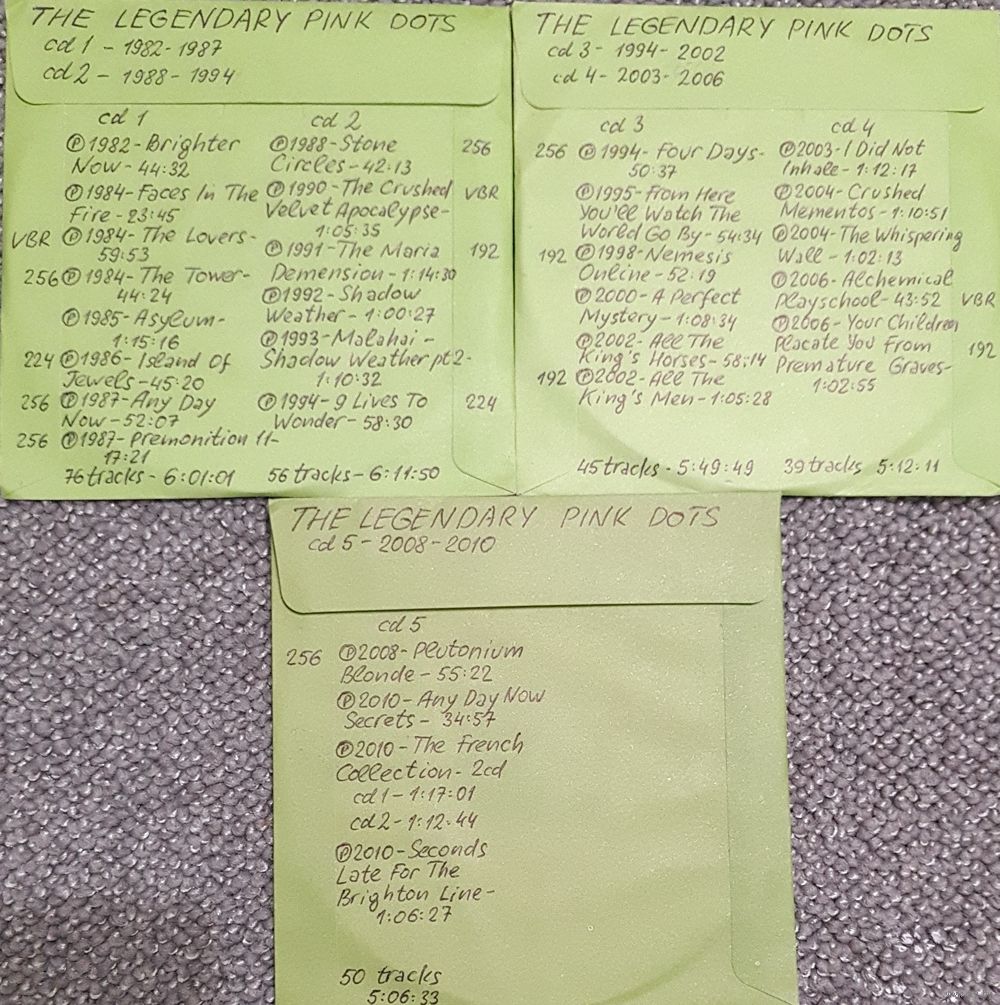 THE LEGENDARY PINK DOTS
cd 1 - 1982-1987
cd 2 - 1988-1994
cd 1
Ⓟ1982-Brighter
Now-44:32
Ⓟ1984-Faces In The
Fire-23:45
VBR Ⓟ1984-The Lovers-
59:53
256 Ⓟ1984-The Tower-
44:24
Ⓟ1985-Asylum-
1:15:16
224 Ⓟ1986-Island Of
Jewels-45:20
256 Ⓟ1987-Any Day
Now-52:07
256 Ⓟ1987-Premonition 11-
17:21
76 tracks - 6:01:01
cd 2
Ⓟ1988-Stone 256
Circles-42:13
Ⓟ1990-The Crushed VBR
Velvet Apocalypse-
1:05:35
Ⓟ1991-The Maria 192
Demension-1:14:30
Ⓟ1992-Shadow
Weather-1:00:27
Ⓟ1993-Malahai-
Shadow Weather pt2-
1:10:32
Ⓟ1994-9 Lives To 224
Wonder-58:30
56 tracks-6:11:50
THE LEGENDARY PINK DOTS
cd 3 - 1994-2002
cd 4 - 2003-2006
cd 3
256 Ⓟ1994-Four Days-
50:37
Ⓟ1995-From Here
You'll Watch The
World Go By-54:34
192 Ⓟ1998-Nemesis
Online-52:19
Ⓟ2000-A Perfect
Mystery-1:08:34
Ⓟ2002-All The
King's Horses-58:14
192 Ⓟ2002-All The
King's Men-1:05:28
45 tracks - 5:49:49
cd 4
Ⓟ2003-I Did Not
Inhale-1:12:17
Ⓟ2004-Crushed
Mementos-1:10:51
Ⓟ2004-The Whispering
Wall-1:02:13
Ⓟ2006-Alchemical
Playschool-43:52 VBR
Ⓟ2006-Your Children
Placate You From 192
Premature Graves-
1:02:55
39 tracks 5:12:11
THE LEGENDARY PINK DOTS
cd 5-2008-2010
cd 5
256 Ⓟ2008-Plutonium
Blonde-55:22
Ⓟ2010-Any Day Now
Secrets-34:57
Ⓟ2010-The French
Collection-2cd
cd 1-1:17:01
cd 2-1:12:44
Ⓟ2010-Seconds
Late For The
Brighton Line-
1:06:27
50 tracks
5:06:33